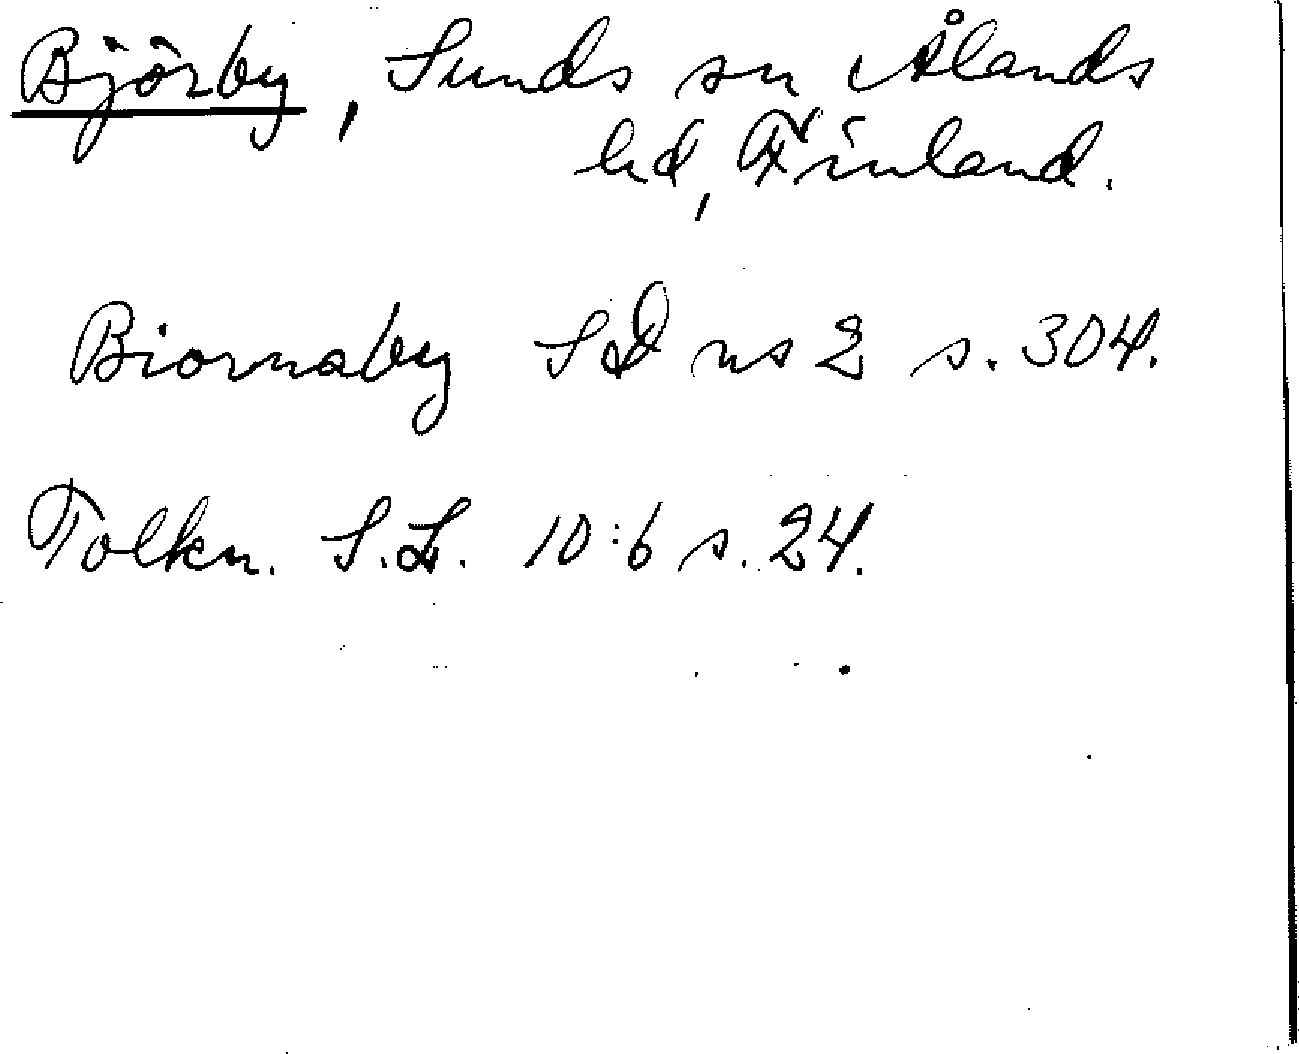 Björby, Sunds sn, Ålands
hd, Finland.
Biornaby SD ns 2 s. 304.
Tolkn. S.L. 10:6 s. 24.